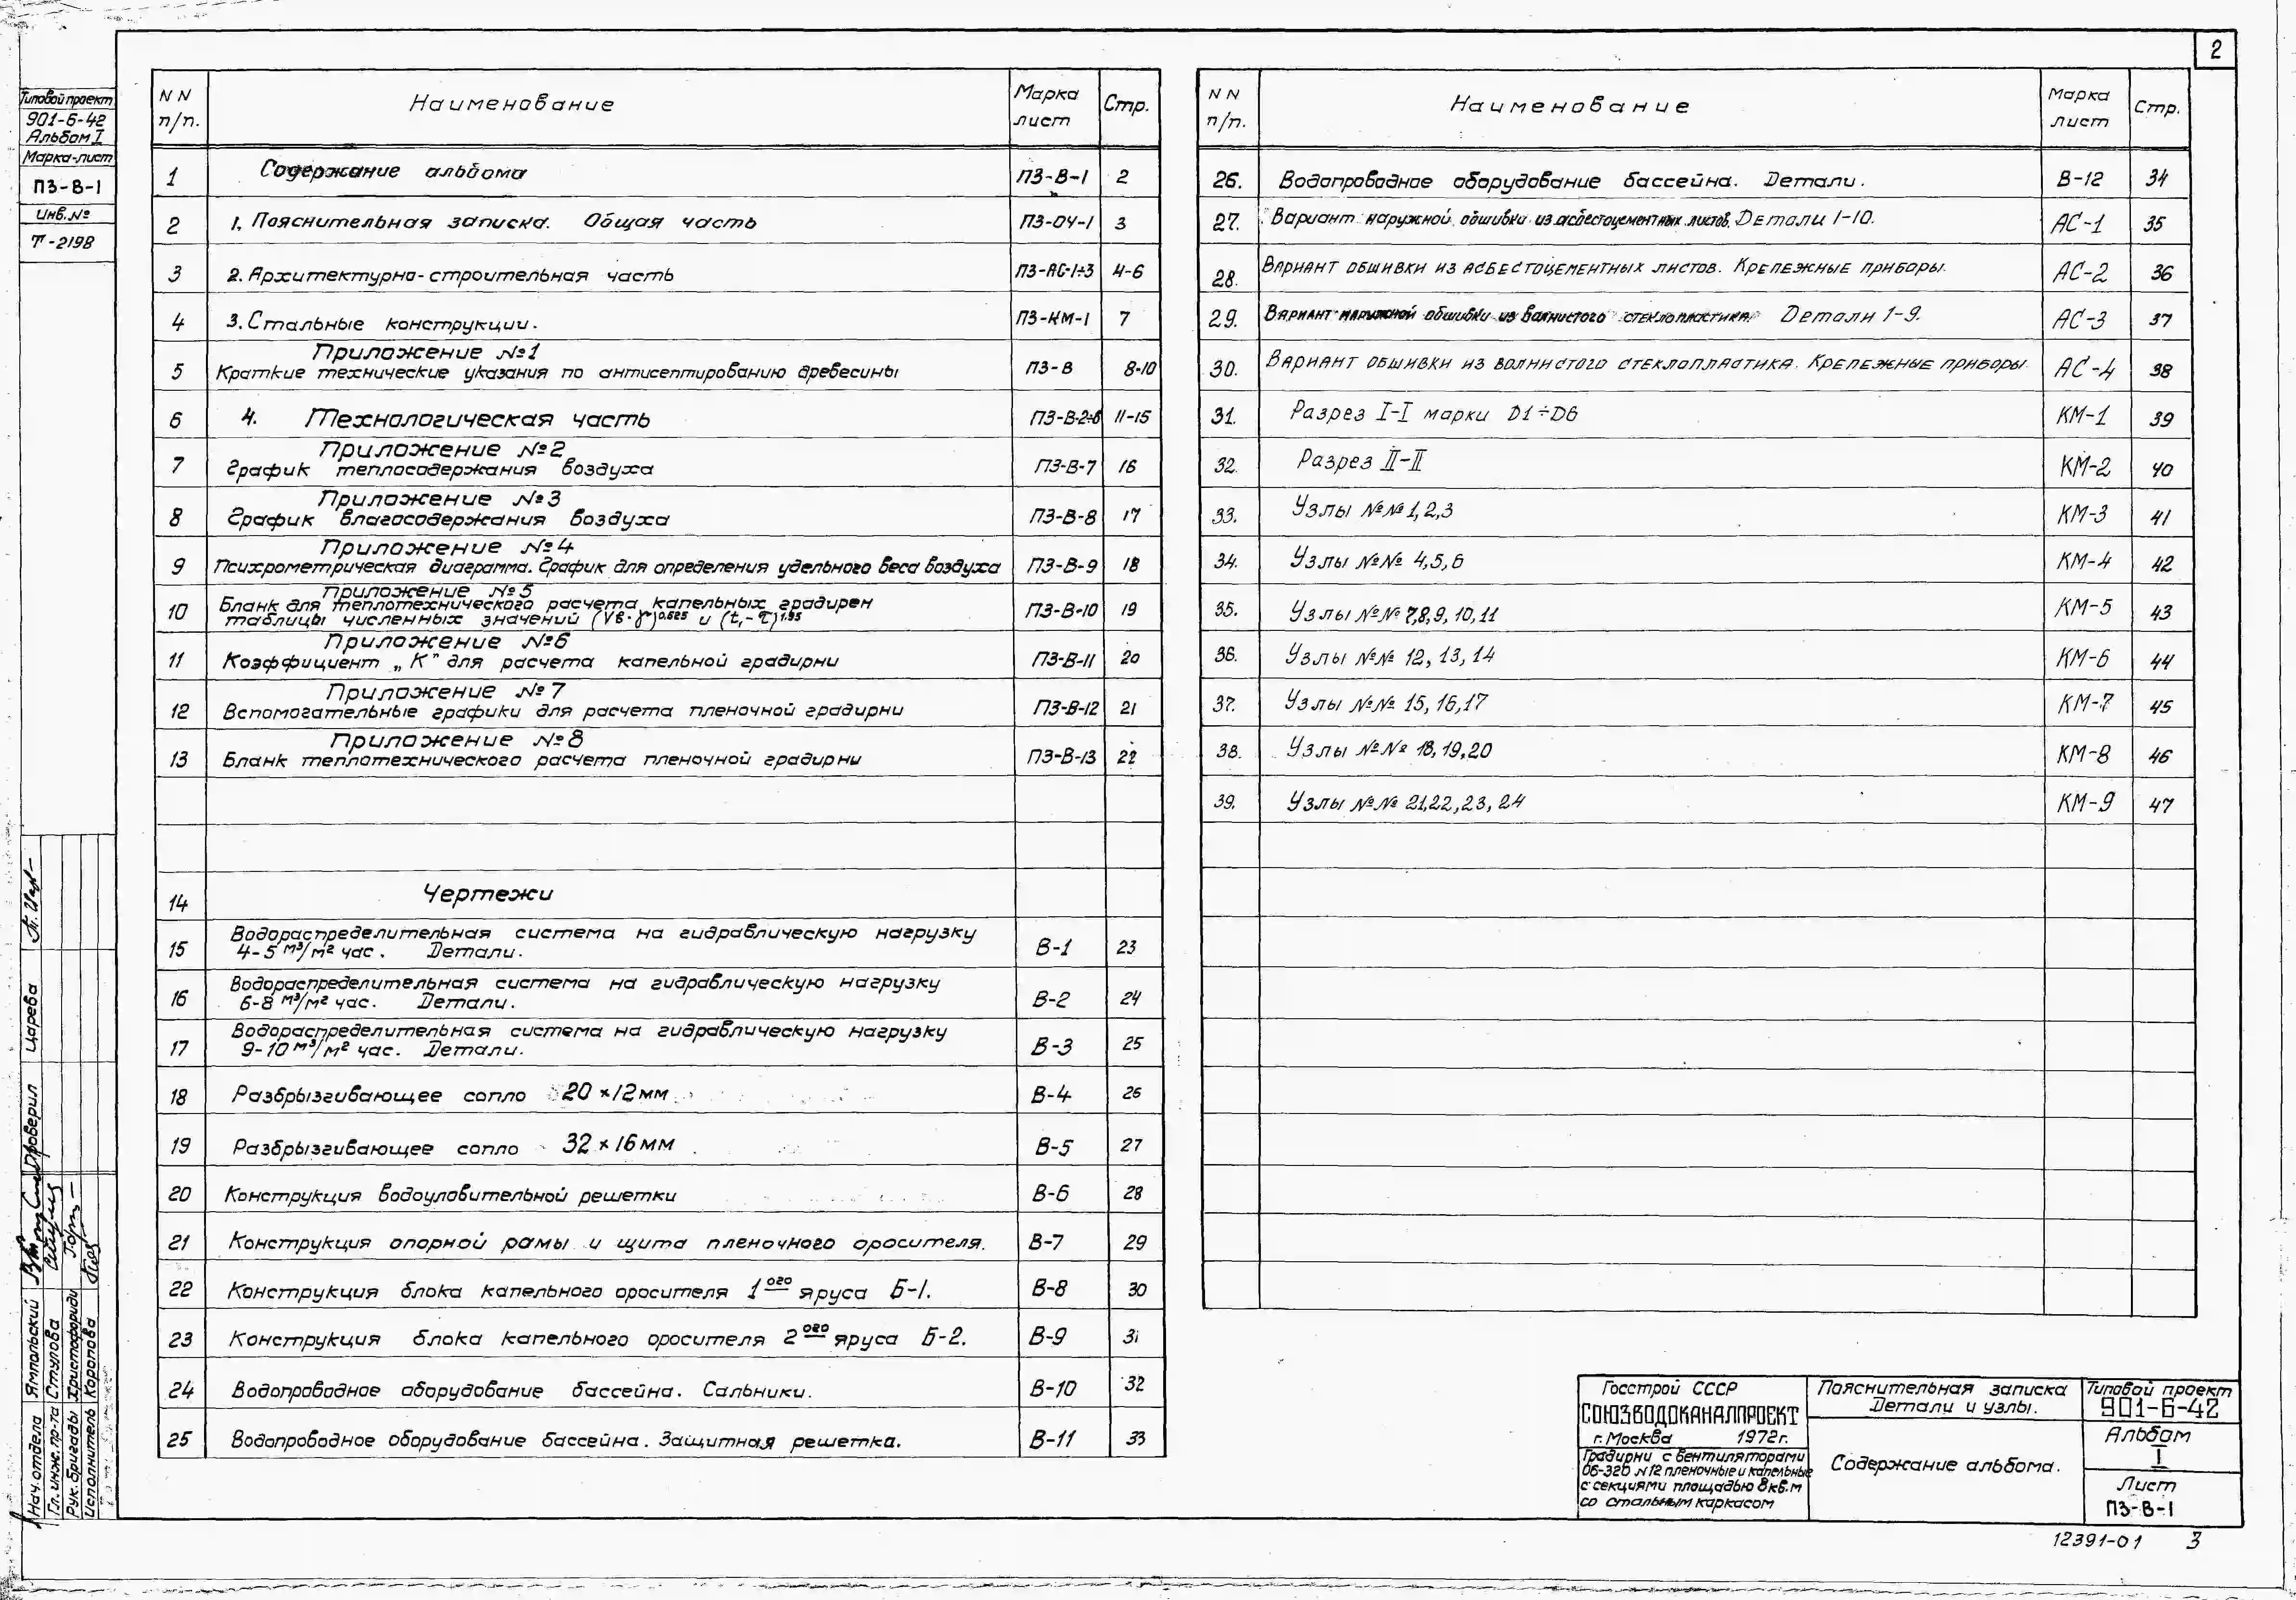 2
Типовой проект
901-6-42
Альбом I
Марка-лист
ПЗ-В-1
Инв.№
Т-2198
NN п/п. Наименование Марка лист Стр.
1 Содержание альбома ПЗ-В-1 2
2 1. Пояснительная записка. Общая часть ПЗ-ОЧ-1 3
3 2. Архитектурно-строительная часть ПЗ-АС-1÷3 4-6
4 3. Стальные конструкции. ПЗ-КМ-1 7
Приложение №1
5 Краткие технические указания по антисептированию древесины ПЗ-В 8-10
6 4. Технологическая часть ПЗ-В-2÷6 11-15
Приложение №2
7 График теплосодержания воздуха ПЗ-В-7 16
Приложение №3
8 График влагосодержания воздуха ПЗ-В-8 17
Приложение №4
9 Психрометрическая диаграмма. График для определения удельного веса воздуха ПЗ-В-9 18
Приложение №5
10 Бланк для теплотехнического расчета капельных градирен ПЗ-В-10 19
таблицы численных значений (Vв·γ)0.625 и (t1-τ)1.95
Приложение №6
11 Коэффициент „К" для расчета капельной градирни ПЗ-В-11 20
Приложение №7
12 Вспомогательные графики для расчета пленочной градирни ПЗ-В-12 21
Приложение №8
13 Бланк теплотехнического расчета пленочной градирни ПЗ-В-13 22
14 Чертежи
15 Водораспределительная система на гидравлическую нагрузку В-1 23
4-5 м³/м² час. Детали.
16 Водораспределительная система на гидравлическую нагрузку В-2 24
6-8 м³/м² час. Детали.
17 Водораспределительная система на гидравлическую нагрузку В-3 25
9-10 м³/м² час. Детали.
18 Разбрызгивающее сопло 20 × 12 мм В-4 26
19 Разбрызгивающее сопло 32 × 16 мм В-5 27
20 Конструкция водоуловительной решетки В-6 28
21 Конструкция опорной рамы и щита пленочного оросителя. В-7 29
22 Конструкция блока капельного оросителя 1ого яруса Б-1. В-8 30
23 Конструкция блока капельного оросителя 2ого яруса Б-2. В-9 31
24 Водопроводное оборудование бассейна. Сальники. В-10 32
25 Водопроводное оборудование бассейна. Защитная решетка. В-11 33
NN п/п. Наименование Марка лист Стр.
26. Водопроводное оборудование бассейна. Детали. В-12 34
27. Вариант наружной обшивки из асбестоцементных листов. Детали 1-10. АС-1 35
28. Вариант обшивки из асбестоцементных листов. Крепежные приборы. АС-2 36
29. Вариант наружной обшивки из волнистого стеклопластика. Детали 1-9. АС-3 37
30. Вариант обшивки из волнистого стеклопластика. Крепежные приборы. АС-4 38
31. Разрез I-I марки D1÷D6 КМ-1 39
32. Разрез II-II КМ-2 40
33. Узлы №№ 1,2,3 КМ-3 41
34. Узлы №№ 4,5,6 КМ-4 42
35. Узлы №№ 7,8,9,10,11 КМ-5 43
36. Узлы №№ 12,13,14 КМ-6 44
37. Узлы №№ 15,16,17 КМ-7 45
38. Узлы №№ 18,19,20 КМ-8 46
39. Узлы №№ 21,22,23,24 КМ-9 47
Нач. отдела Ямпольский
Гл. инж. пр-та Стулова
Рук. бригады Христофориди
Исполнитель Коропова
Проверил Царева
Госстрой СССР
СОЮЗВОДОКАНАЛПРОЕКТ
г. Москва 1972г.
Градирни с вентиляторами
06-320 №12 пленочные и капельные
с секциями площадью 8 кв.м
со стальным каркасом
Пояснительная записка
Детали и узлы.
Содержание альбома.
Типовой проект
901-6-42
Альбом
I
Лист
ПЗ-В-1
12391-01 3